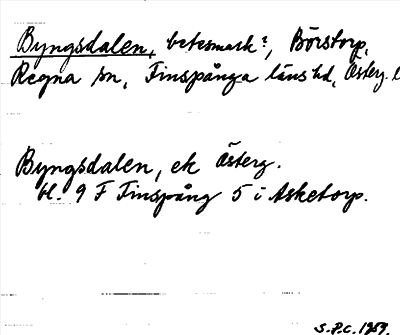 Byngsdalen, betesmark?, Börstorp,
Regna sn, Finspånga läns hd, Österg. l
Byngsdalen, ek Österg.
bl. 9 F Finspång 5 i Asketorp.
S.P.C. 1959.